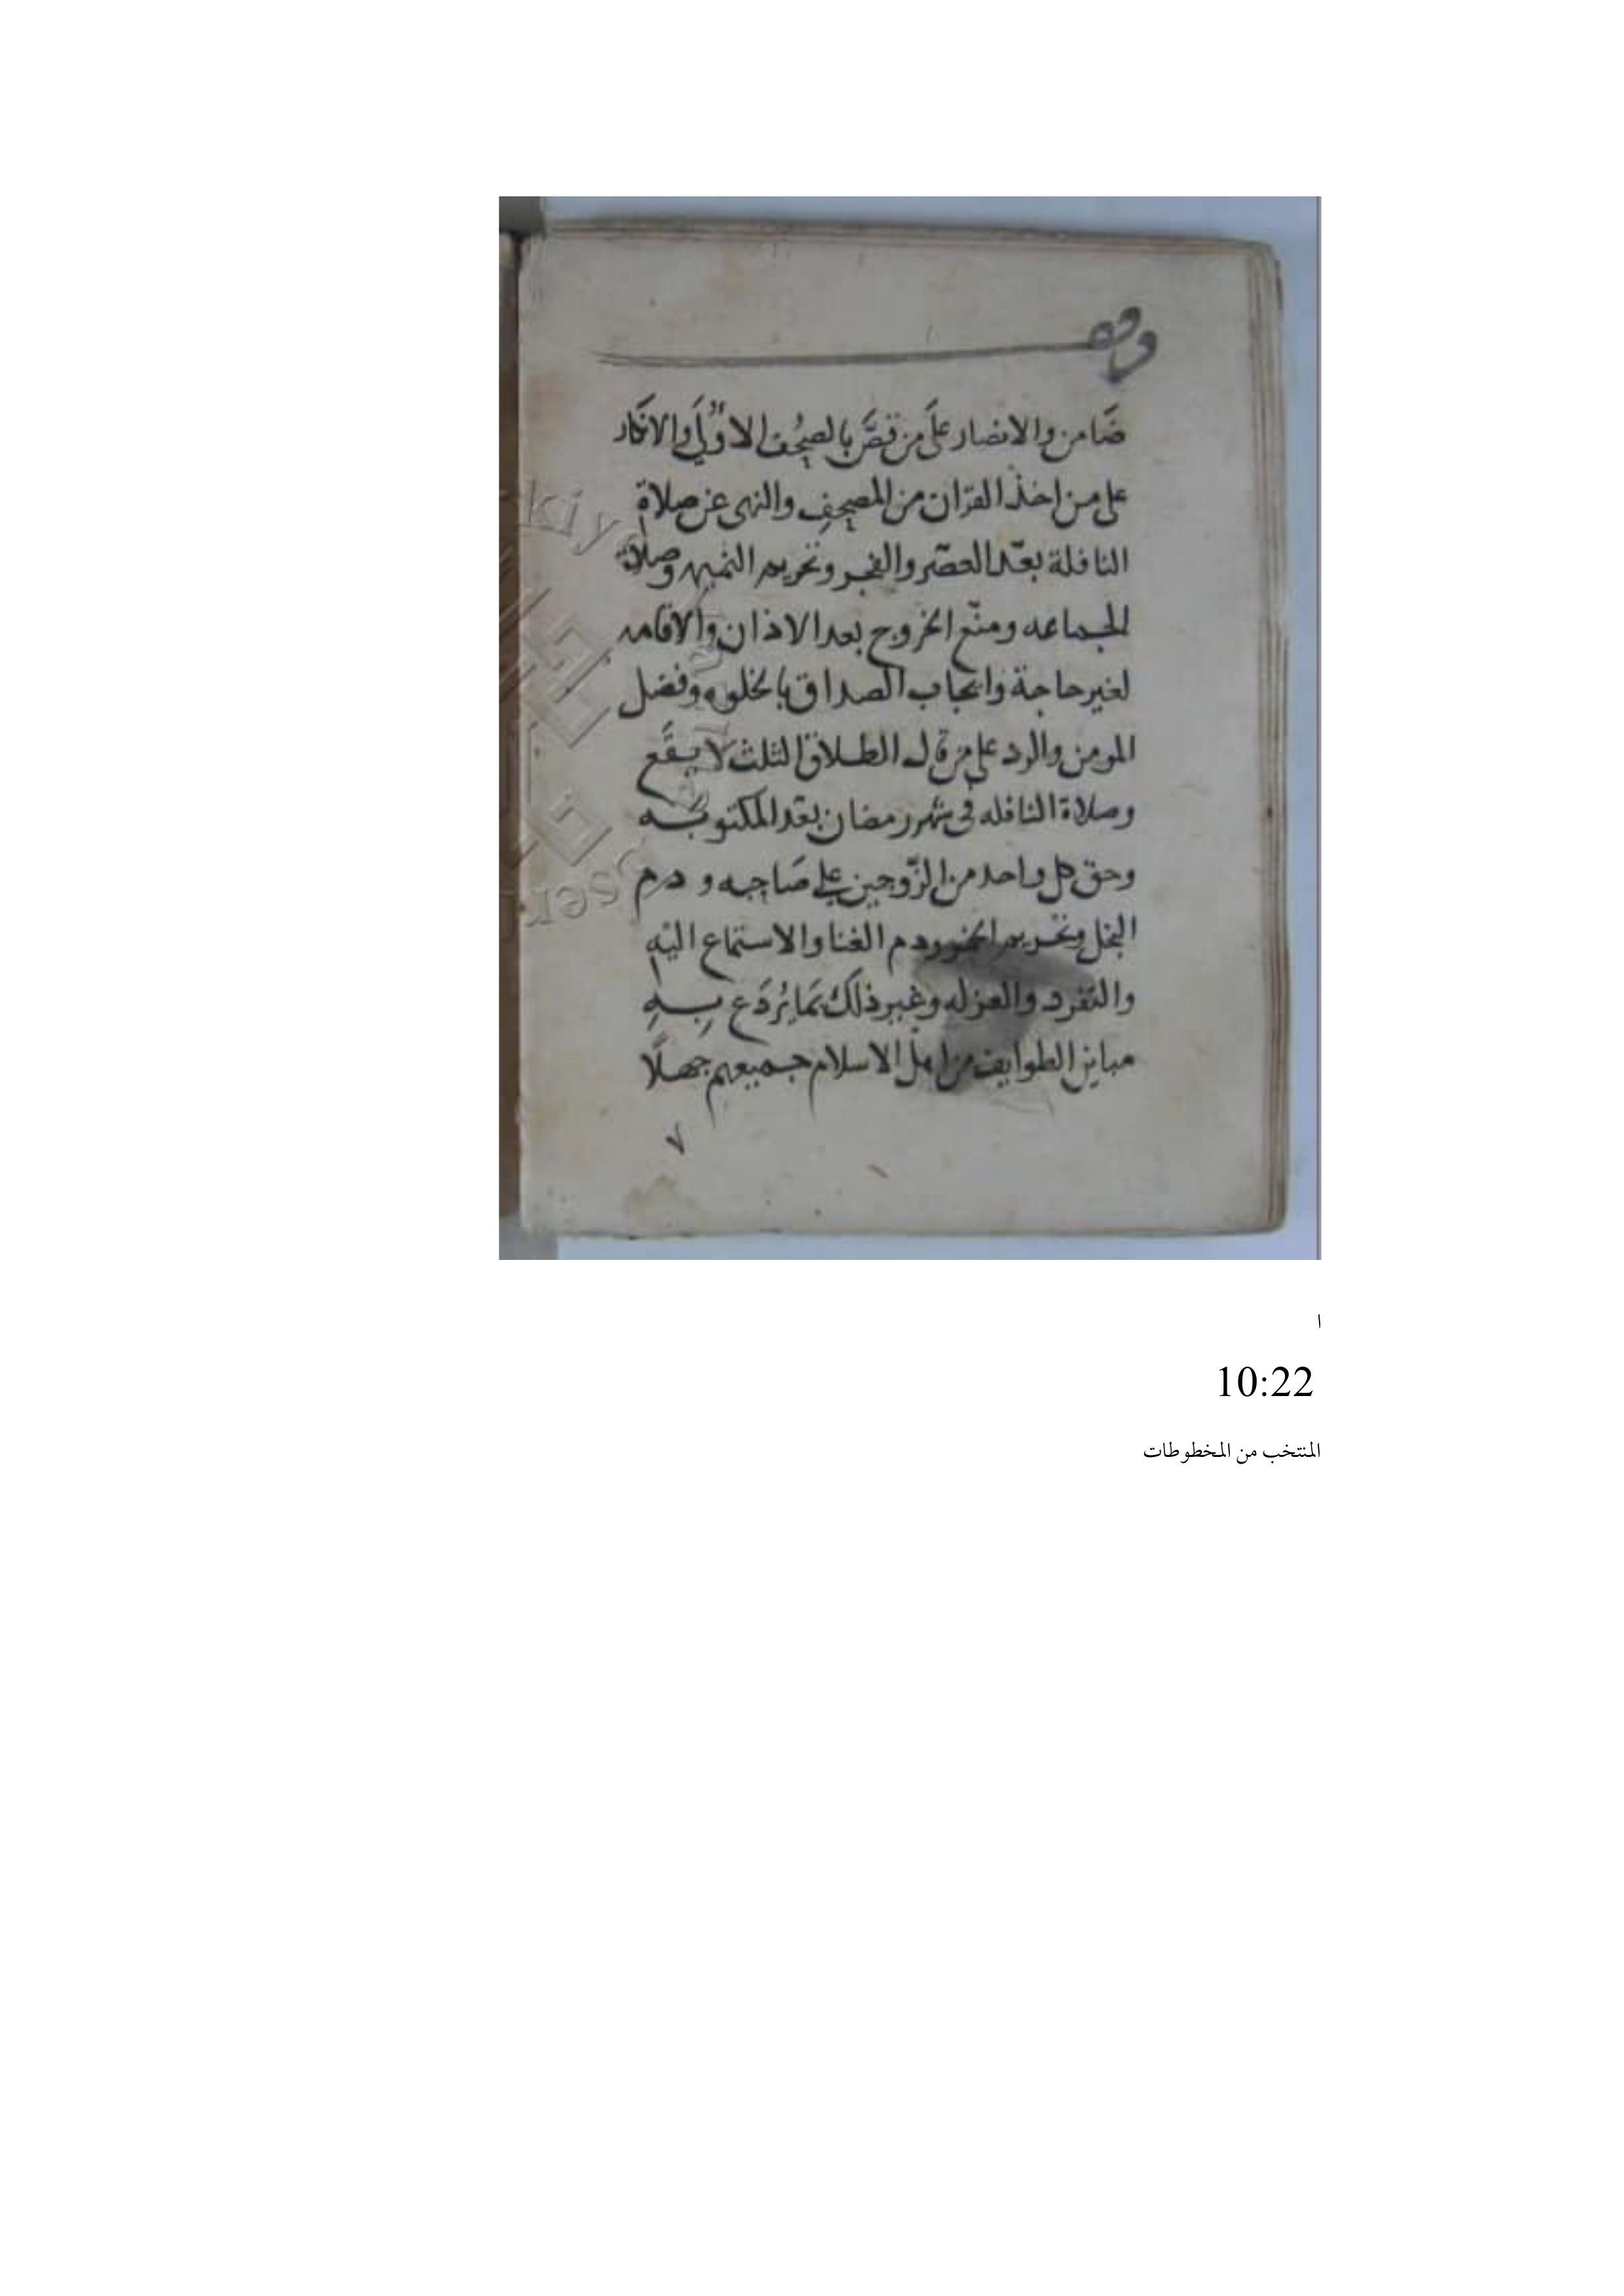 وقف
ضَامن والانصار علَى من قصَّر بالصحُف الاوّلي والانكار
على من اخذ القران من المصحف والنهى عن صلاة
النافلة بعد العصر والفجر وتحريم وصلاة
الجماعه ومنع الخروج بعد الاذان والاقامه
لغير حاجة وايجاب الصداق بالخلوه وفضل
المومن والرد على من قال الطلاق الثلث لا يقَع
وصلاة النافله فى شهر رمضان بعد المكتوبه
وحق كل واحد من الزّوجين على صَاحبه و دم
البخل وتحريم الخمر ودم الغنا والاستماع اليه
والتفرد والعزله وغير ذلك مما يُردَع بِهِ
مباين الطوايف من اهل الاسلام جميعهم جهلًا
٧
ا
10:22
المنتخب من المخطوطات